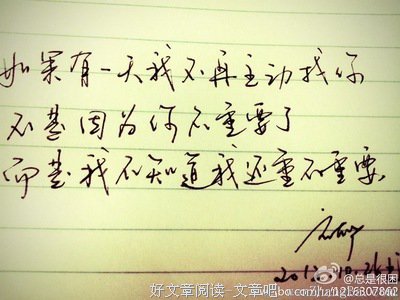 如果有一天我不再主动找你
不是因为你不重要了
而是我不知道我还重不重要
@总是很困
好文章阅读-文章吧